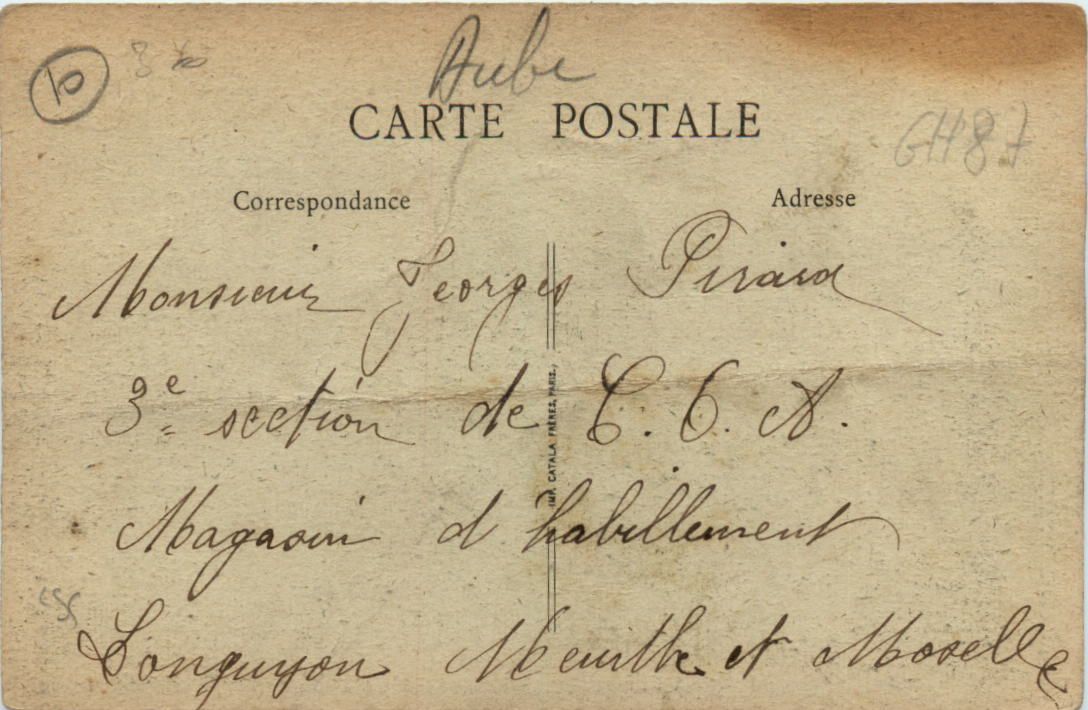 10
Aube
CARTE POSTALE
GH87
Correspondance Adresse
Monsieur Georges Pirard
3e section de C. O. A.
IMP. CATALA FRÈRES, PARIS.
Magasin d'habillement
Longuyon Meurthe et Moselle